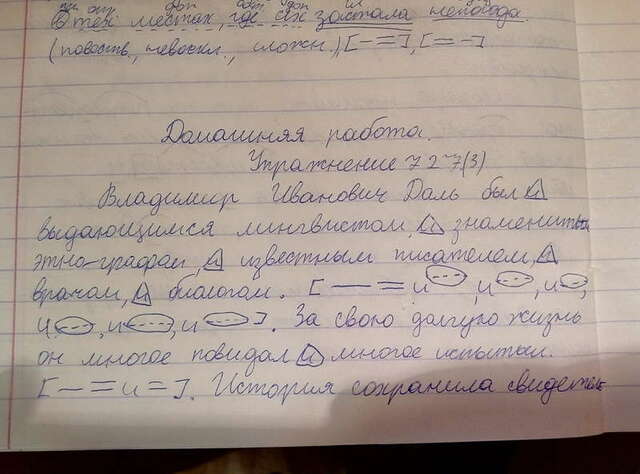 тех местах, где их застала непогода.
(повеств., невоскл., сложн.), [— =], [= —]
Домашняя работа.
Упражнение 727(3)
Владимир Иванович Даль был и
выдающимся лингвистом, и знаменитым
этно-графом, и известным писателем, и
врачом, и биологом. [ — = и , и , и ,
и , и , и ]. За свою долгую жизнь
он многое повидал и многое испытал.
[ — = и = ]. История сохранила свидетель